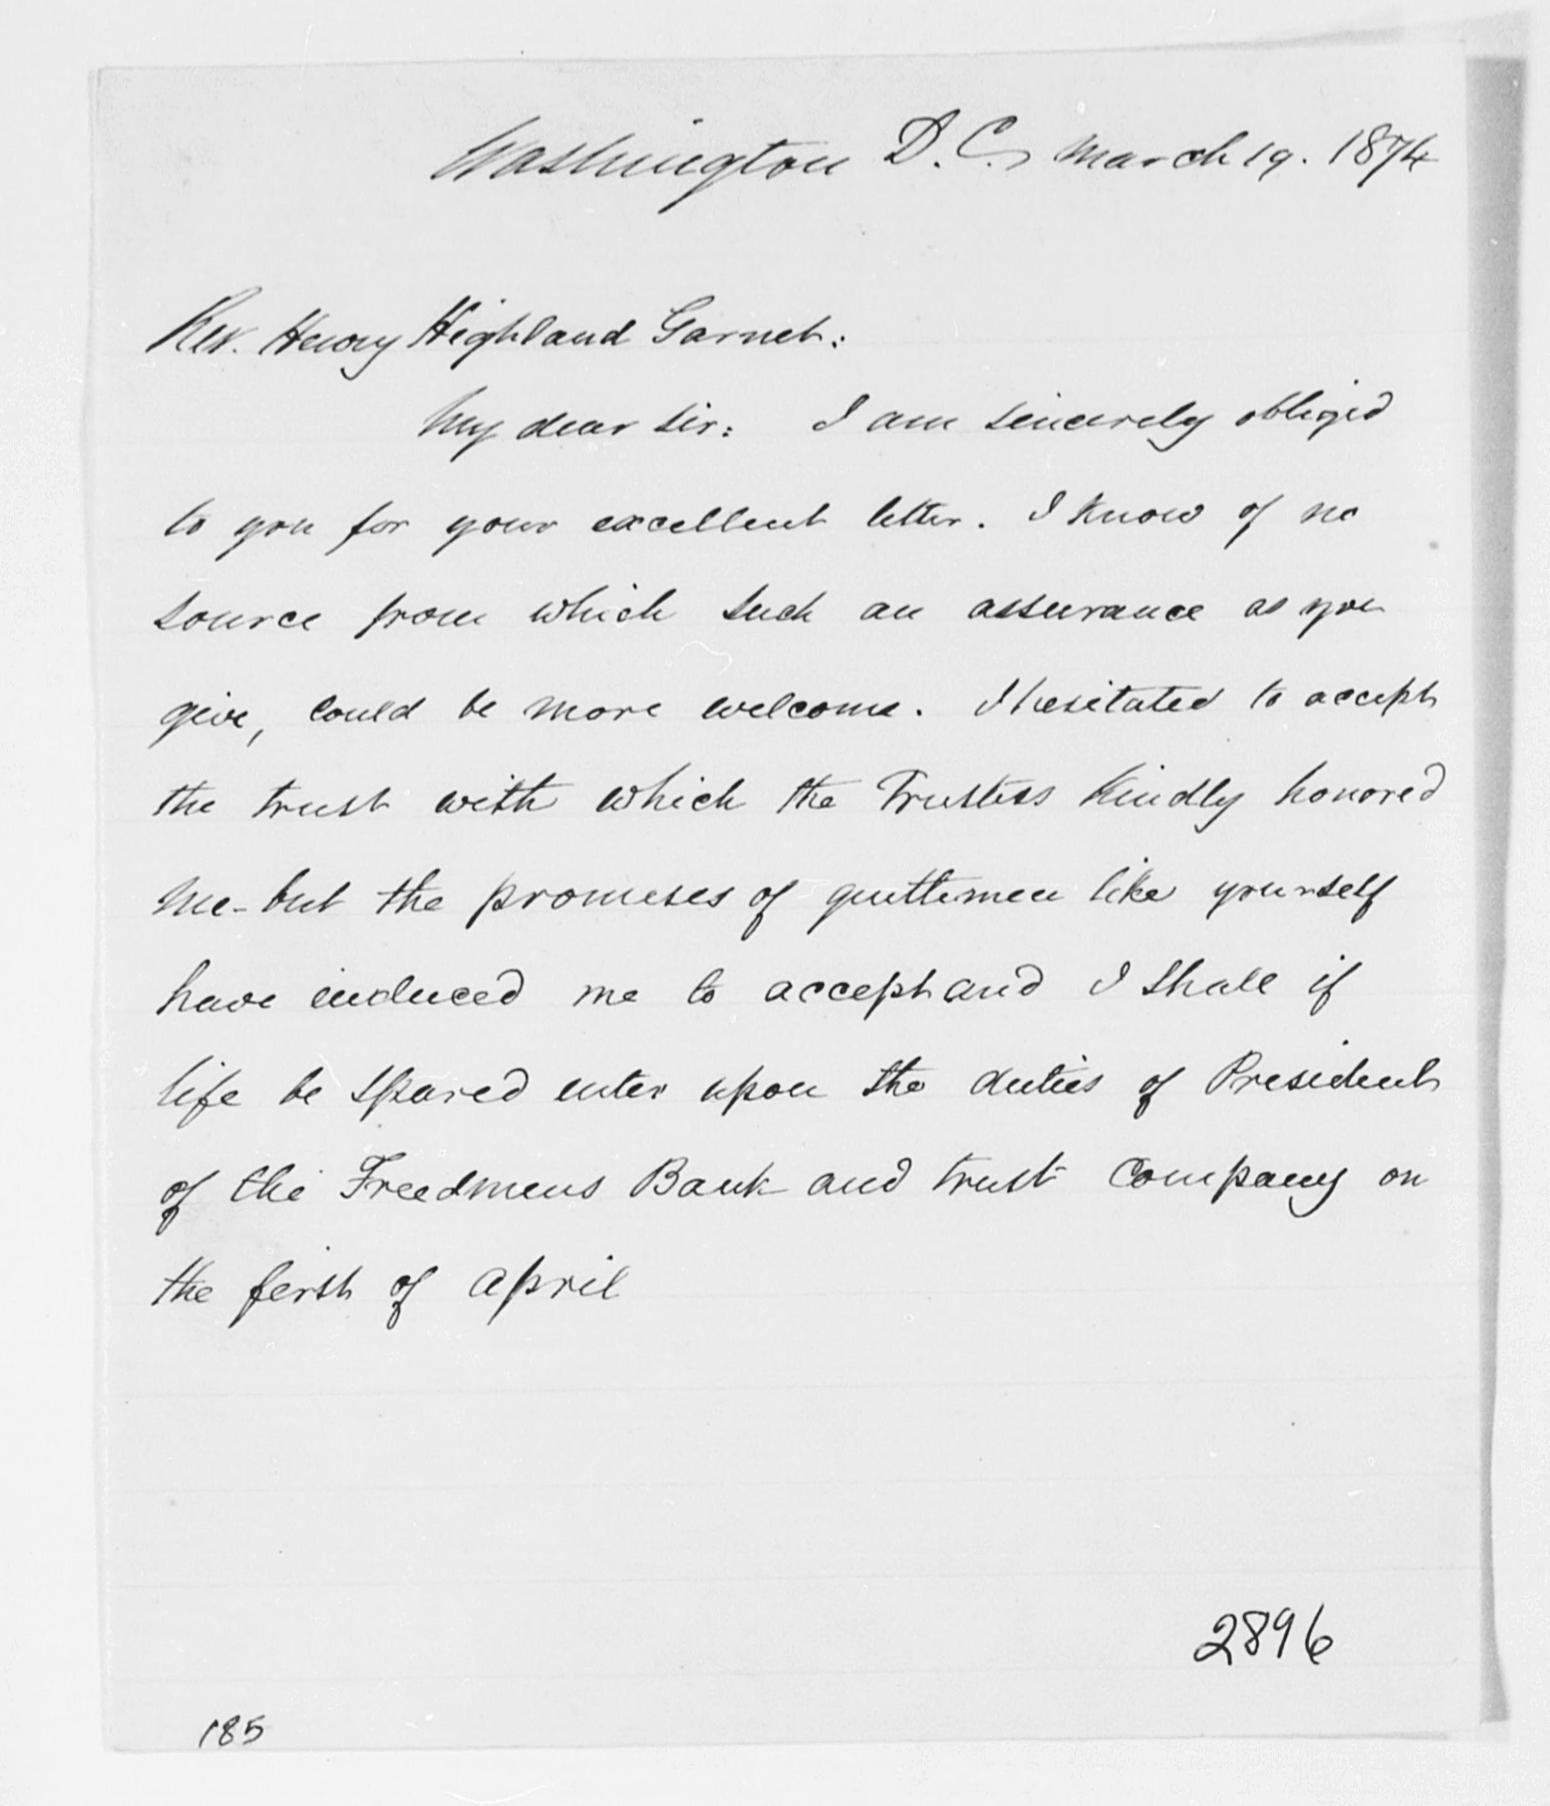 Washington D.C., March 19. 1874
Rev. Henry Highland Garnet:
My dear sir: I am sincerely obliged
to you for your excellent letter. I know of no
source from which such an assurance as you
give, could be more welcome. I hesitated to accept
the trust with which the Trustees kindly honored
me - but the promises of gentlemen like yourself
have induced me to accept and I shall if
life be spared enter upon the duties of President
of the Freedmens Bank and trust Company on
the first of April
2896
185